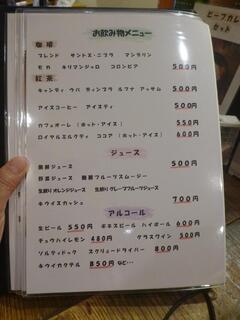 お飲み物メニュー
珈琲
ブレンド サントス・ニブラ マンデリン
モカ キリマンジャロ コロンビア 500円
紅茶
キャンディ ウバ ディンブラ ルフナ アッサム 500円
アイスコーヒー アイスティ 500円
カフェオーレ（ホット・アイス） 550円
ロイヤルミルクティ ココア（ホット・アイス） 600円
ジュース
ジュース 500円
野菜ジュース フルーツスムージー
生絞りオレンジジュース 生絞りグレープフルーツジュース
キウイスカッシュ 700円
アルコール
生ビール 550円 ギネスビール ハイボール 600円
チュウハイレモン 480円 グラスワイン 500円
ソルティドック スクリュードライバー 800円
キウイカクテル 850円 など…
ビーフカレ
セット